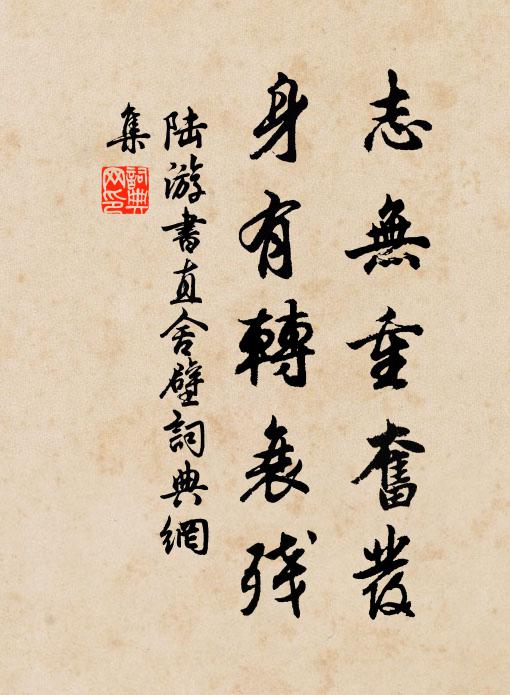 志無重奮發
身有轉衰殘
陸游書直舍壁詞典網
集
詞典
网印